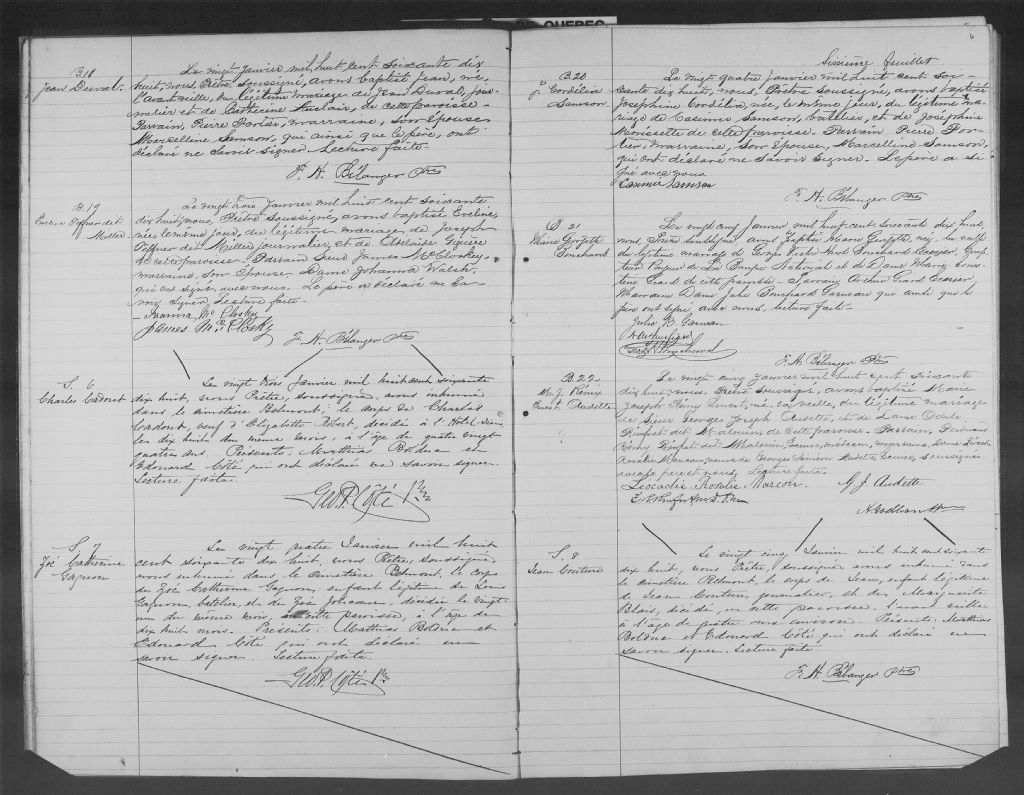 QUEBEC
B. 18
Jean Duval
Le vingt janvier mil huit cent soixante dix
huit, nous, Prêtre, soussigné, avons baptisé Jean, né,
l'avant veille, du légitime mariage de Jean Duval, jour-
nalier et de Catherine Auclair, de cette paroisse -
Parrain, Pierre Portier, marraine, Son épouse
Marcelline Samson, qui ainsi que le père, ont
déclaré ne savoir signer. Lecture faite.
F. H. Bélanger Ptre
B. 19
Eveline
dit
Miller
Le vingt trois janvier mil huit cent soixante
dix huit, nous, Prêtre soussigné, avons baptisé Eveline,
née le même jour, du légitime mariage de Joseph
dit Miller journalier, et de Adelaïde
de cette paroisse - Parrain Sieur James McClosky,
marraine, Son Epouse Dame Johanna Walsh,
qui ont signé avec nous. Le père a déclaré ne sa-
voir signer, Lecture faite -
Joanna Mc Closky
James Mc Closky
F. H. Bélanger Ptre
S. 6
Charles Cadoret
Le vingt trois Janvier mil huit cent soixante
dix huit, nous Prêtre, soussigné, avons inhumé
dans le cimetière Belmont, le corps de Charles
Cadoret, veuf d'Elizabeth Robert, décédé à l'Hôtel-Dieu,
le dix huit du même mois, à l'âge de quatre vingt
quatre ans. Présents: Matthias Bolduc et
Edouard Côté qui ont déclaré ne savoir signer.
Lecture faite.
Geo. P. Côté Ptre
S. 7
Zoé Catherine
Gagnon
Le vingt quatre Janvier mil huit
cent soixante dix huit, nous Prêtre, soussigné,
avons inhumé dans le cimetière Belmont, le corps
de Zoé Catherine Gagnon, enfant légitime de Louis
Gagnon, et de Zoé, décédée le vingt
un du même mois, en cette paroisse, à l'âge de
dix huit mois. Présents: Matthias Bolduc et
Edouard Côté qui ont déclaré ne
savoir signer. Lecture faite.
Geo. P. Côté Ptre
6
Sixième feuillet
B. 20
J. Cordélia
Samson
Le vingt quatre janvier mil huit cent soi-
xante dix huit, nous, Prêtre soussigné, avons baptisé
Josephine Cordélia, née, le même jour, du légitime ma-
riage de Casimir Samson, et de Josephine
Morissette de cette paroisse. Parrain Pierre Por-
tier, marraine, Son épouse, Marcelline Samson,
qui ont déclaré ne savoir signer. Le père a si-
gné avec nous.
Casimir Samson
F. H. Bélanger Ptre
B. 21
Marie
Bouchard
Le vingt cinq Janvier mil huit cent soixante dix huit,
nous, Prêtre soussigné avons baptisé Marie née la veille
du légitime mariage de Bouchard
de La Banque National et de Dame Mary
de cette paroisse - Parrain Arthur
Marraine Dame Julie Bouchard Garneau qui ainsi que le
père ont signé avec nous, lecture faite -
Julie B. Garneau
Bouchard
F. H. Bélanger Ptre
B. 22
Ernest Audette
Le vingt cinq janvier mil huit cent soixante
dix huit, nous Prêtre Soussigné, avons baptisé Marie
Joseph Ernest, né, la veille, du légitime mariage
de Sieur Georges Joseph Audette, et de Dame Odile,
Rinfret dit Malouin de cette paroisse. Parrain, Ferdinand
Rémy Rinfret dit Malouin, Ecuier, médecin, marraine, Dame Léocadie
Rosalie Marcoux veuve de Georges Siméon Audette Ecuier, soussignés
avec le père et nous, Lecture faite.
Léocadie Rosalie Marcoux G. J. Audette
S. 8
Jean Couture
Le vingt cinq Janvier mil huit cent soixante
dix huit, nous Prêtre, soussigné avons inhumé dans
le cimetière Belmont, le corps de Jean, enfant légitime
de Jean Couture, journalier, et de Marguerite
Blais, décédé, en cette paroisse, l'avant veille
à l'âge de quatre ans environ. Présents: Matthias
Bolduc et Edouard Côté qui ont déclaré ne
savoir signer. Lecture faite.
F. H. Bélanger Ptre